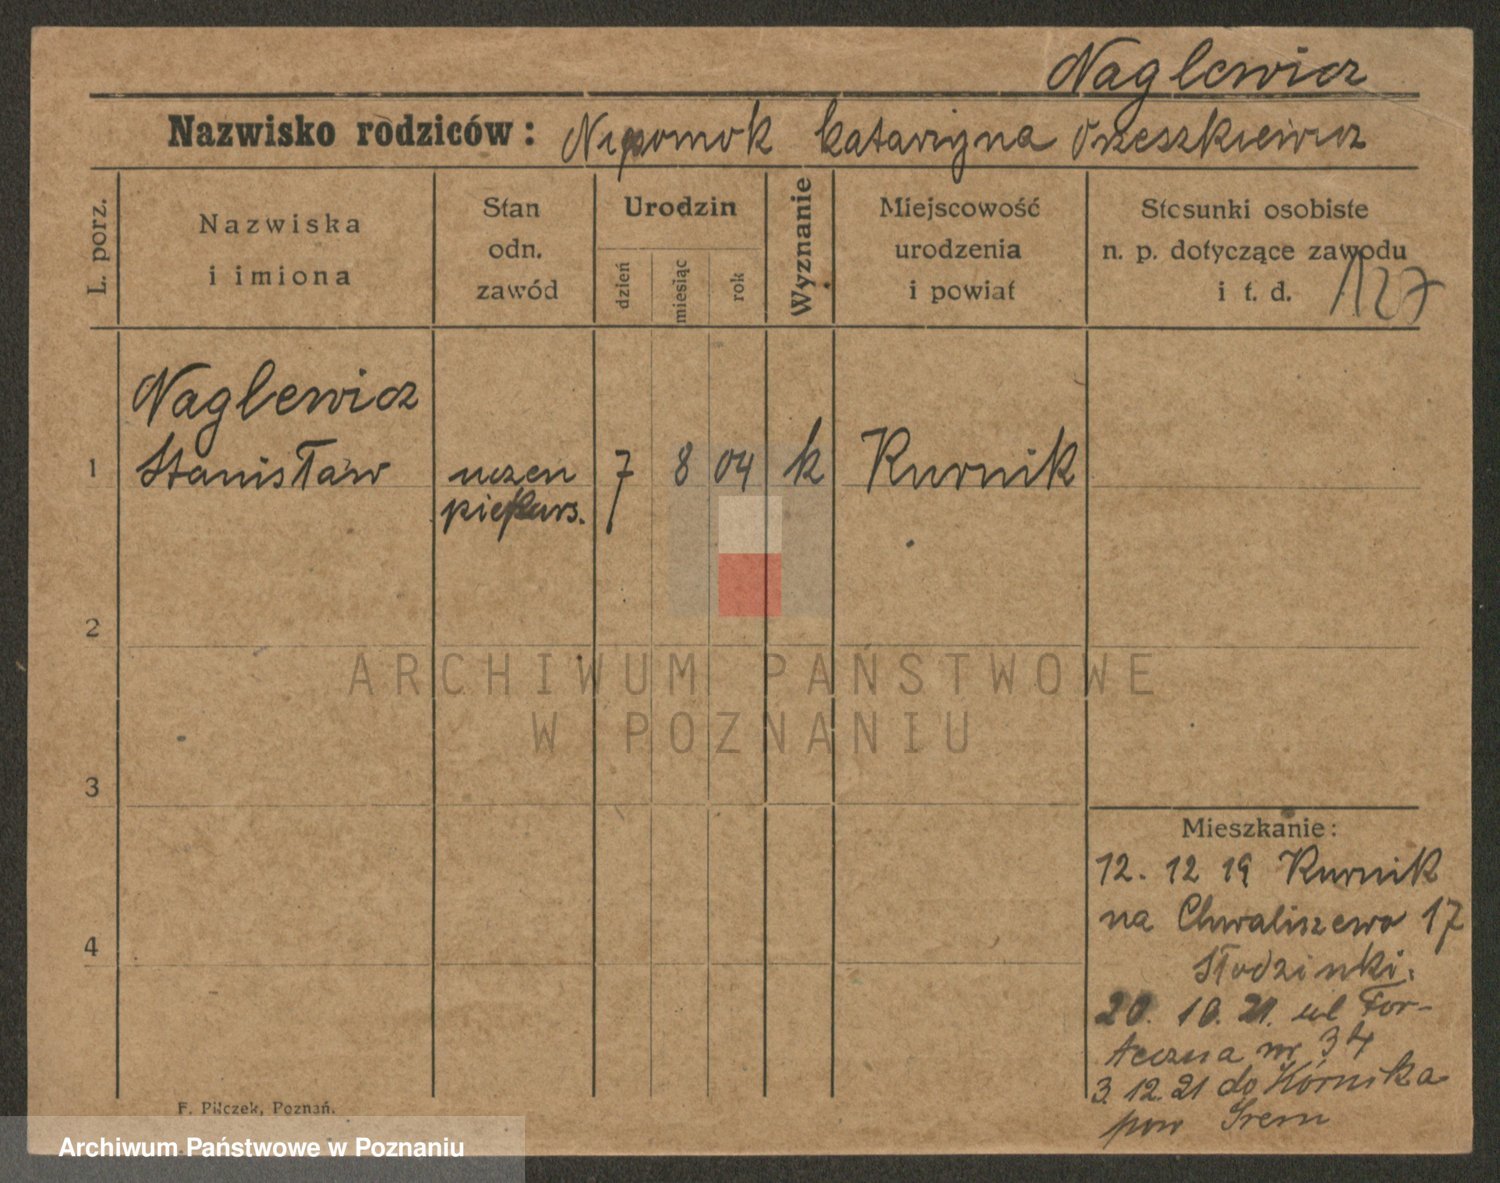 Naglewicz
Nazwisko rodziców: Nepomok Katarzyna Orzeszkiewicz
L. porz.
Nazwiska
i imiona
Stan
odn.
zawód
Urodzin
dzień
miesiąc
rok
Wyznanie
Miejscowość
urodzenia
i powiat
Stosunki osobiste
n. p. dotyczące zawodu
i t. d.
127
Naglewicz
1 Stanisław uczeń 7 8 04 k Kurnik
piekars.
2
3
4
Mieszkanie:
12. 12 19 Kurnik
na Chwaliszewo 17
Słodzinki.
20. 10. 21. ul For-
teczna nr 34
3. 12. 21 do Kórnika
pow Śrem
F. Pilczek, Poznań.
ARCHIWUM PAŃSTWOWE
W POZNANIU
Archiwum Państwowe w Poznaniu